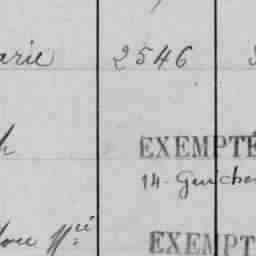 arie 2546
EXEMPTÉ
14. Guiche
lou
EXEMPT